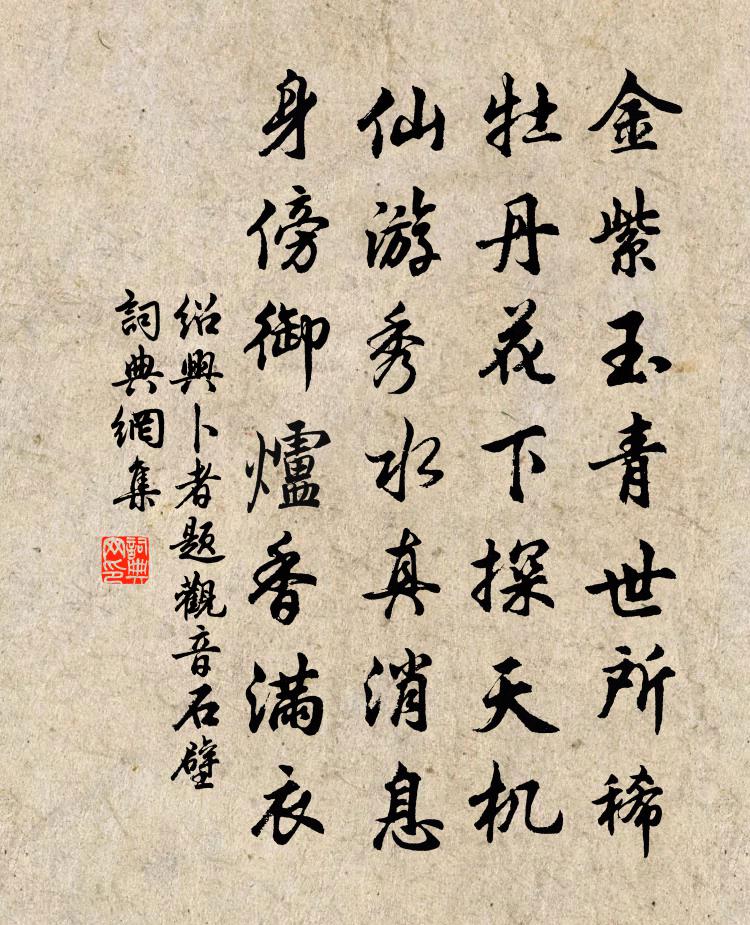 金紫玉青世所稀
牡丹花下探天机
仙游秀水真消息
身傍御爐香满衣
绍興卜者题觀音石壁
詞典網集
詞典网印